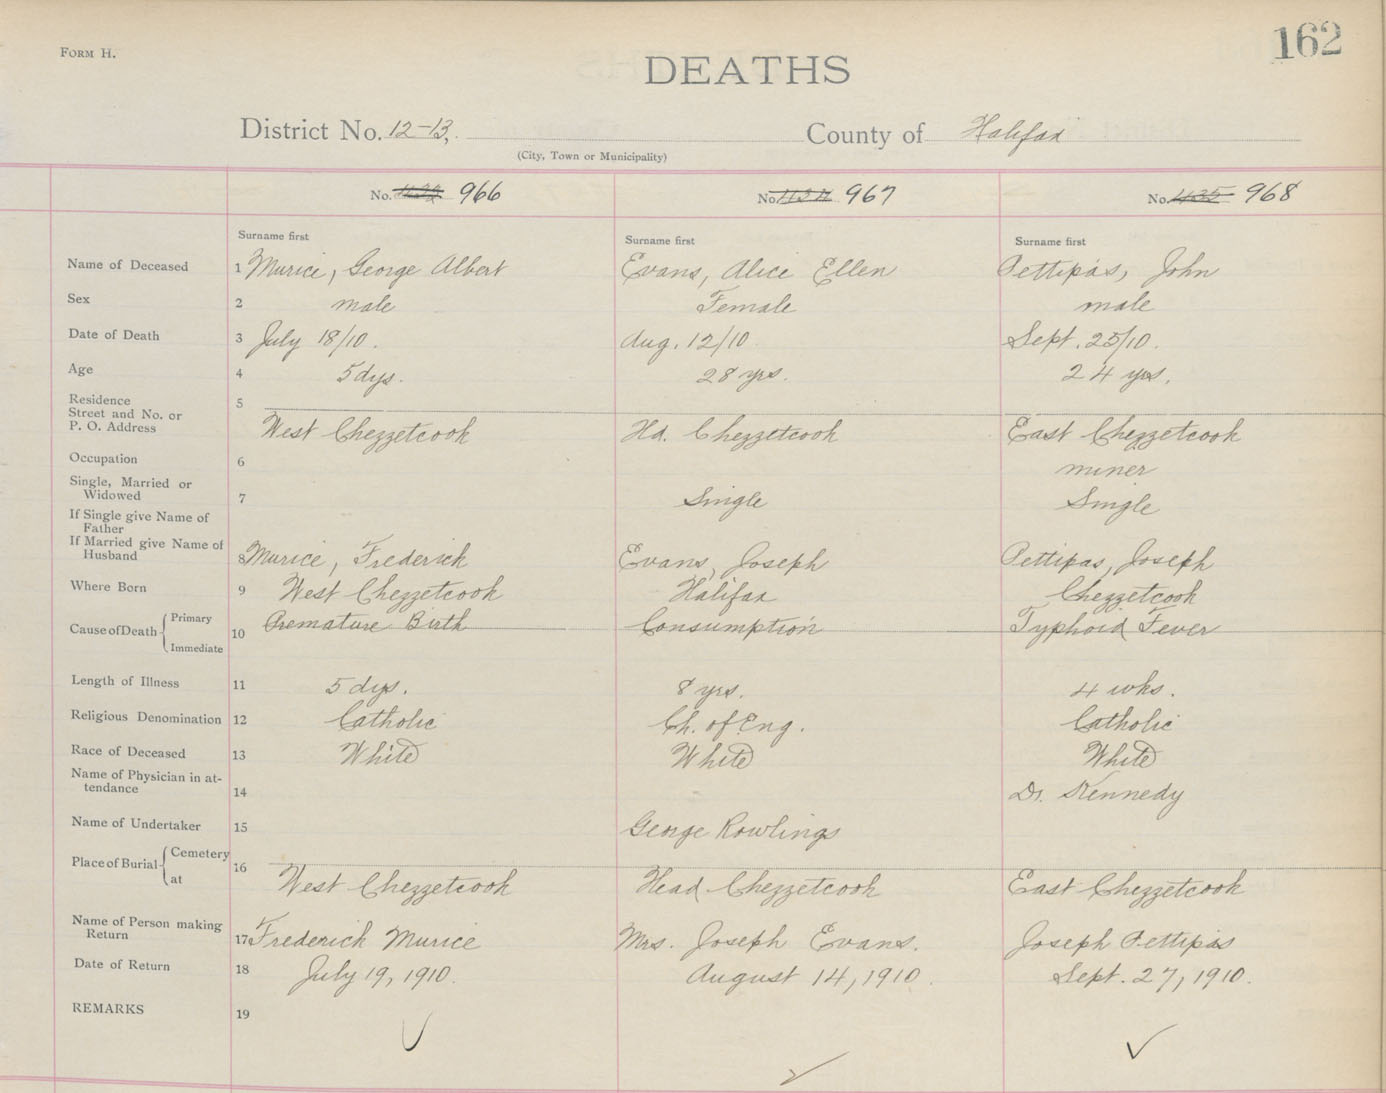 Form H.
162
DEATHS
District No. 12-13, County of Halifax
(City, Town or Municipality)
No. 966 No. 967 No. 1135 968
Surname first Surname first Surname first
Name of Deceased 1 Murice, George Albert Evans, Alice Ellen Pettipas, John
Sex 2 male Female male
Date of Death 3 July 18/10. Aug. 12/10 Sept. 25/10.
Age 4 5 dys. 28 yrs. 24 yrs.
Residence 5
Street and No. or
P. O. Address West Chezzetcook Hd. Chezzetcook East Chezzetcook
Occupation 6 miner
Single, Married or
Widowed 7 Single Single
If Single give Name of
Father
If Married give Name of
Husband 8 Murice, Frederick Evans, Joseph Pettipas, Joseph
Where Born 9 West Chezzetcook Halifax Chezzetcook
Cause of Death Primary Premature Birth Consumption Typhoid Fever
10
Immediate
Length of Illness 11 5 dys. 8 yrs. 4 wks.
Religious Denomination 12 Catholic Ch. of Eng. Catholic
Race of Deceased 13 White White White
Name of Physician in at-
tendance 14 Dr. Kennedy
Name of Undertaker 15 George Rowlings
Place of Burial Cemetery
16
at West Chezzetcook Head Chezzetcook East Chezzetcook
Name of Person making
Return 17 Frederick Murice Mrs. Joseph Evans. Joseph Pettipas
Date of Return 18 July 19, 1910. August 14, 1910. Sept. 27, 1910.
REMARKS 19